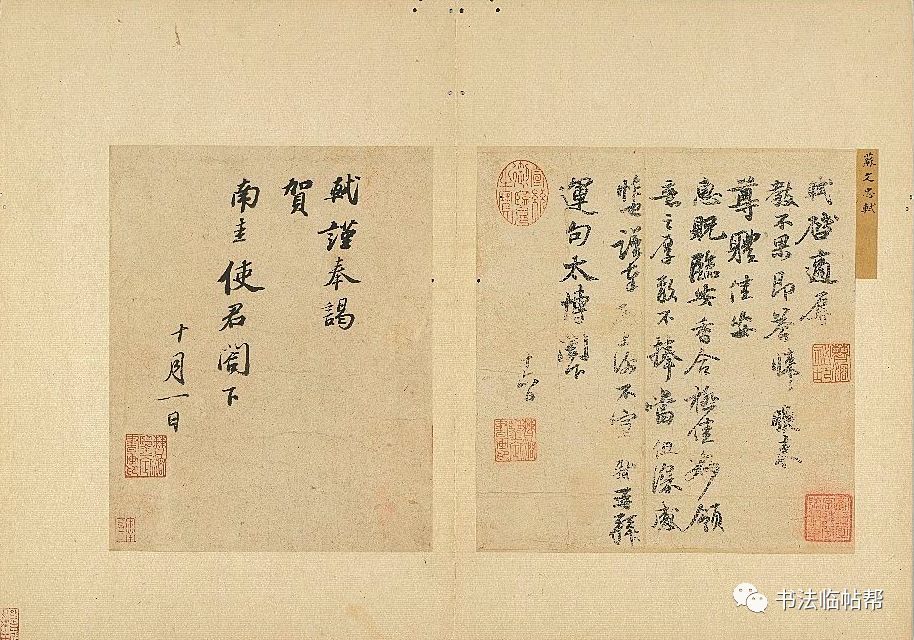 蘇文忠軾
軾啓適辱
教不果即答悚悚晚來
尊體佳安
惠貺臨安香合極佳妙領
意之厚敢不捧當但深感
怍也謹奉 不宣軾再拜
運句太博閣下
十六日
軾謹奉謁
賀
南圭使君閣下
十月一日
书法临帖帮